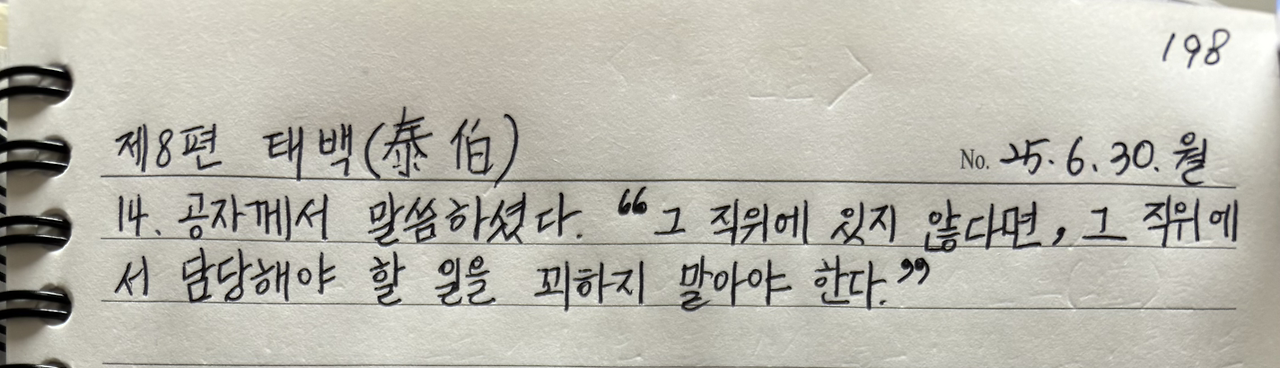 198
제8편 태백(泰伯) No. 25. 6. 30. 월
14. 공자께서 말씀하셨다. “그 직위에 있지 않다면, 그 직위에
서 담당해야 할 일을 꾀하지 말아야 한다.”